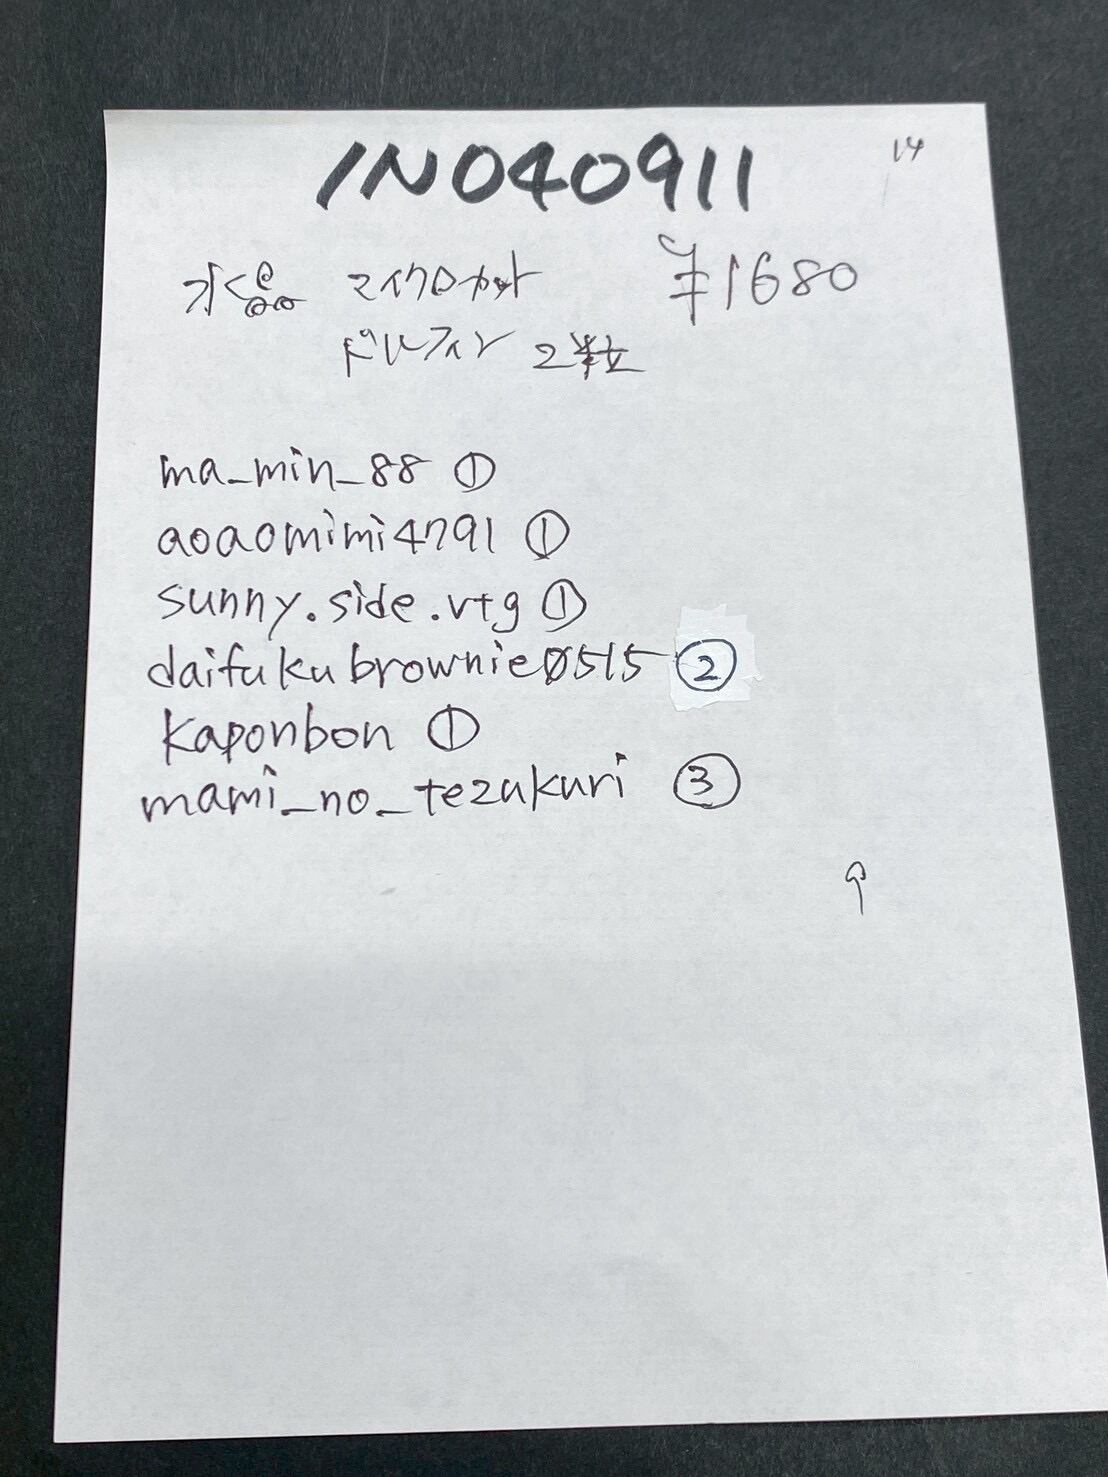 IN040911
14
水晶 マイクロカット ¥1680
ドルフィン 2粒
ma_min_88 ①
aoaomimi4791 ①
sunny.side.vtg ①
daifukubrownie0515 ②
kaponbon ①
mami_no_tezukuri ③